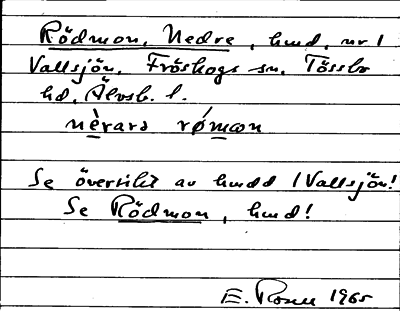 Rödmon, Nedre, hmd. nr 1
Vallsjön, Fröskogs sn, Tössbo
hd, Älvsb. l.
nèrarə rǿmωn
Se översikt av hmdd / Vallsjön!
Se Rödmon, hmd!
E. Rosell 1965